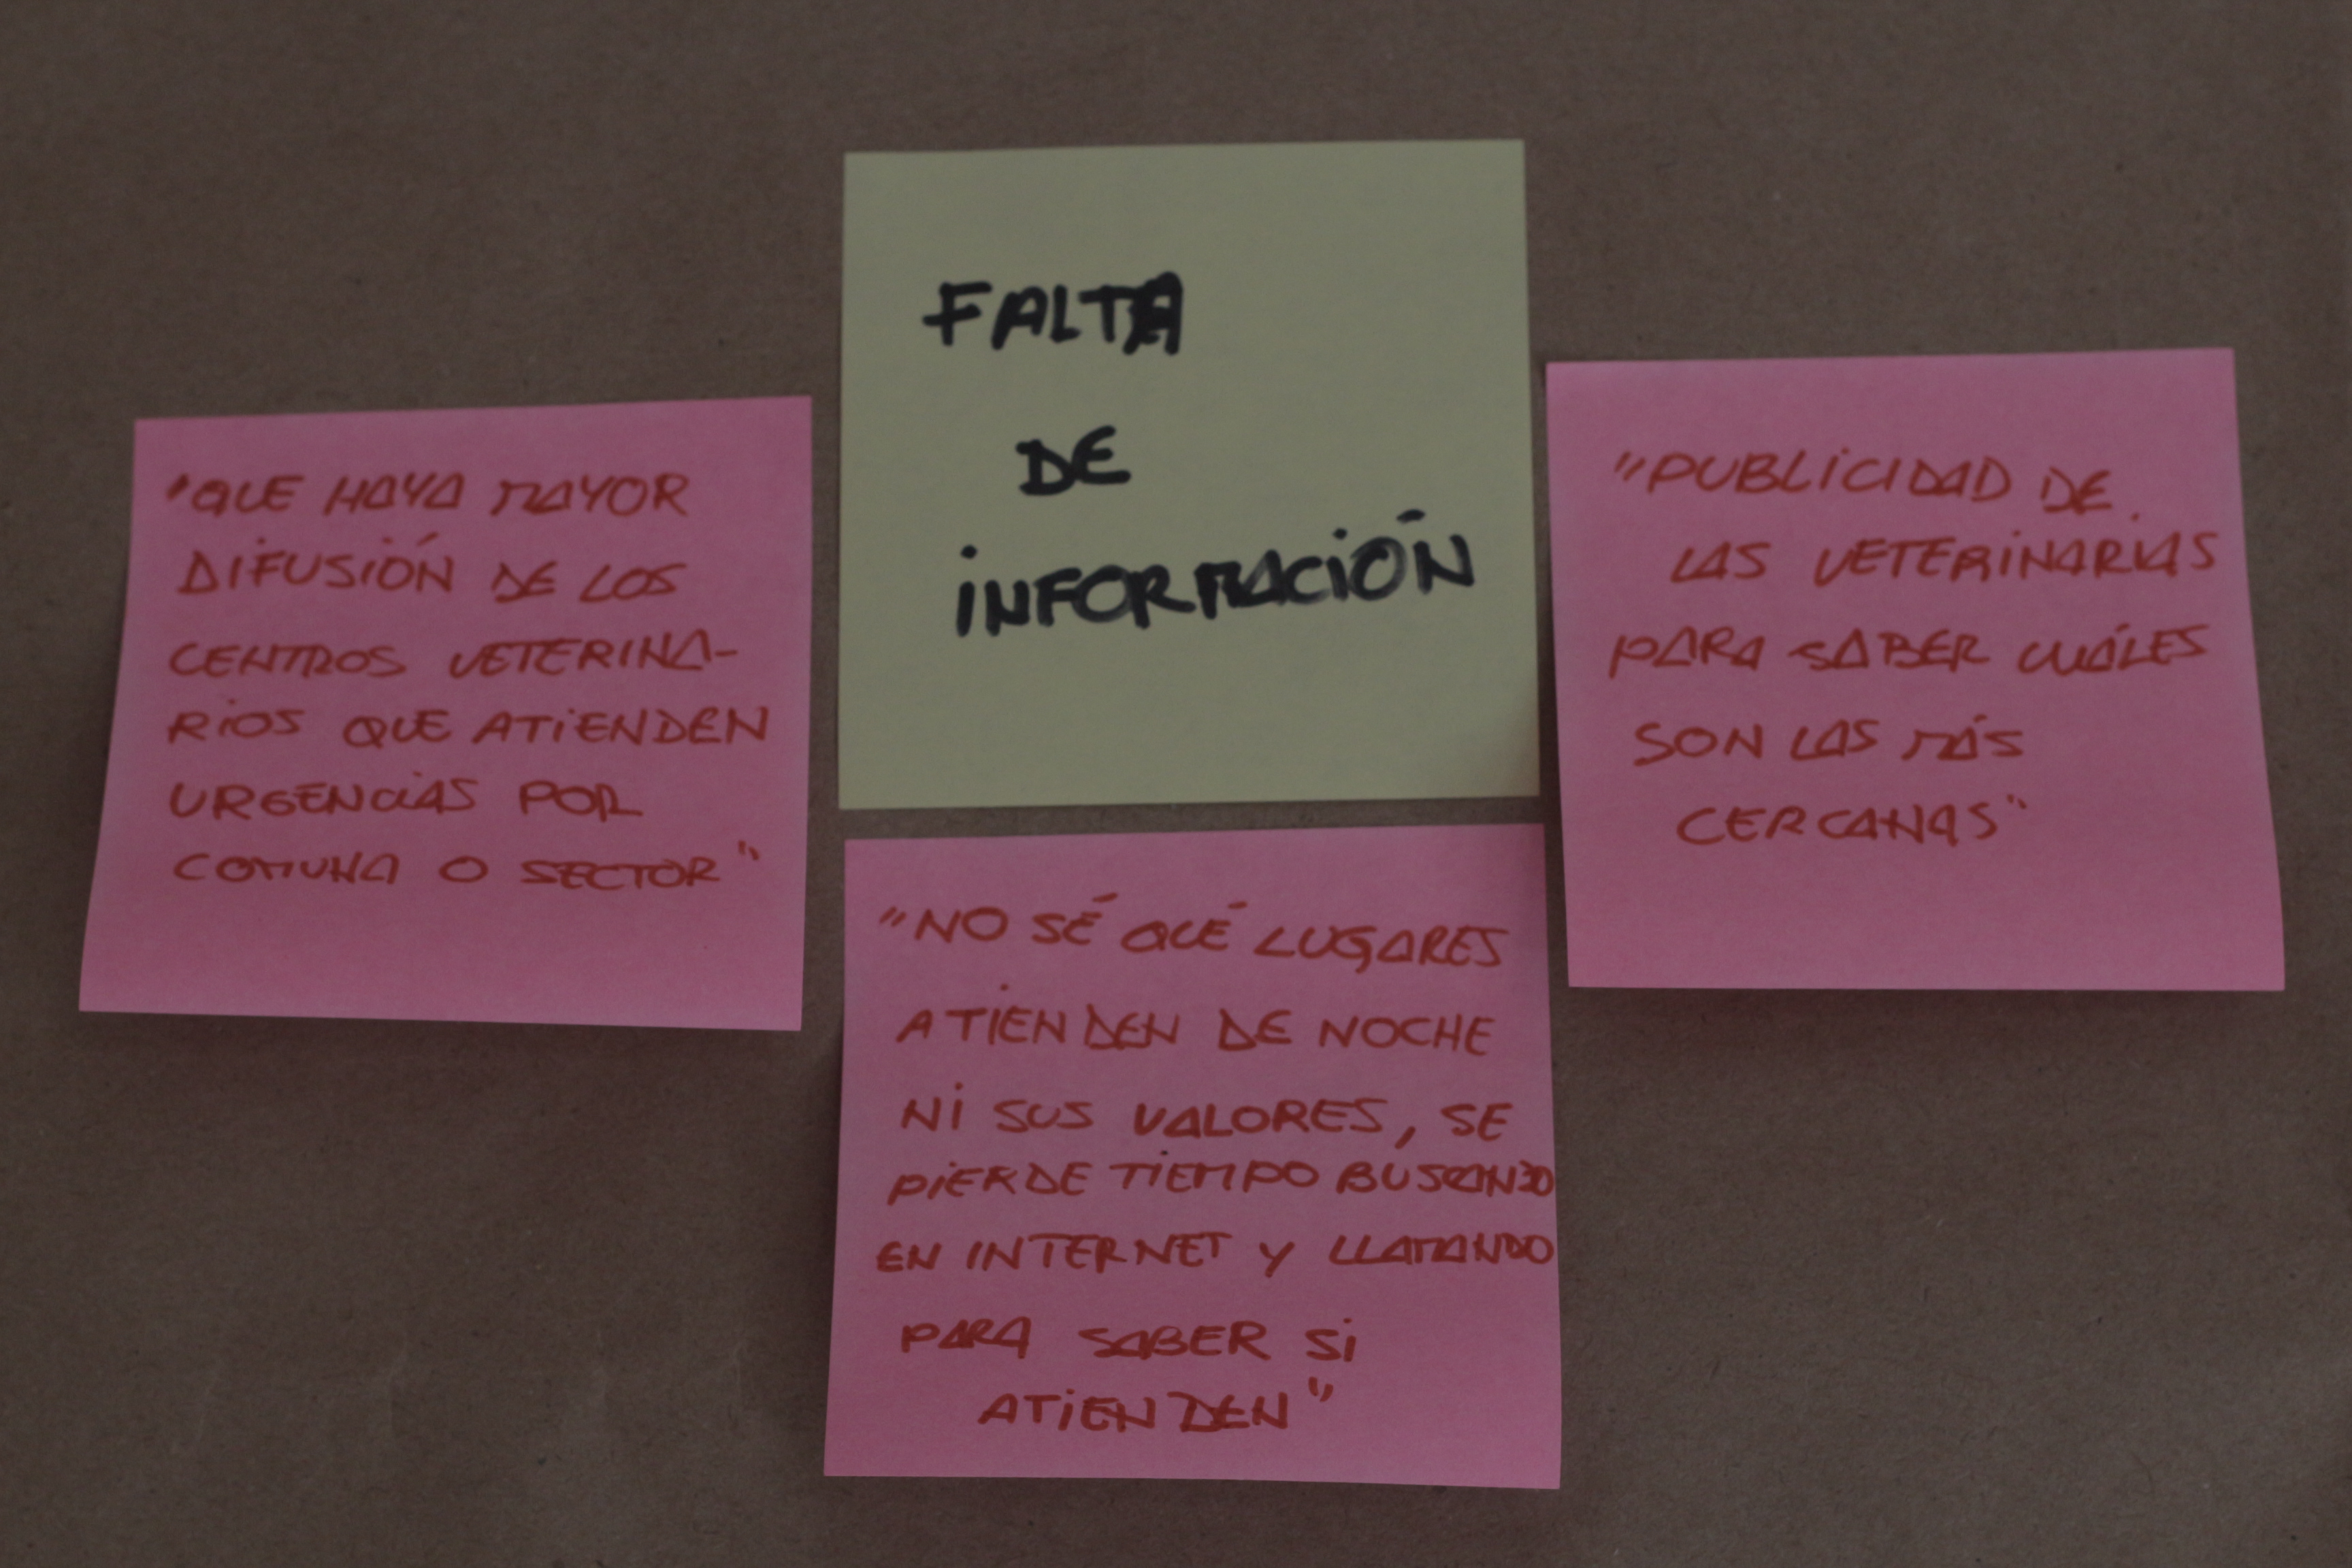 FALTA
DE
iNFORMACiÓN
"QUE HAYA MAYOR
DiFUSiÓN DE LOS
CENTROS VETERINA-
RiOS QUE ATiENDEN
URGENCiAS POR
COMUNA O SECTOR"
"NO SÉ QUÉ LUGARES
ATiENDEN DE NOCHE
Ni SUS VALORES, SE
PiERDE TiEMPO BUSCANDO
EN INTERNET Y LLAMANDO
PARA SABER Si
ATiENDEN"
"PUBLiCIDAD DE
LAS VETERiNARIAS
PARA SABER CUÁLES
SON LAS MÁS
CERCANAS"